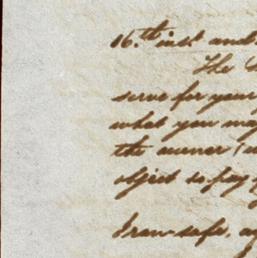 16.th inst and
The
serve for your
what you may
the owner
object to pay
I am safe,